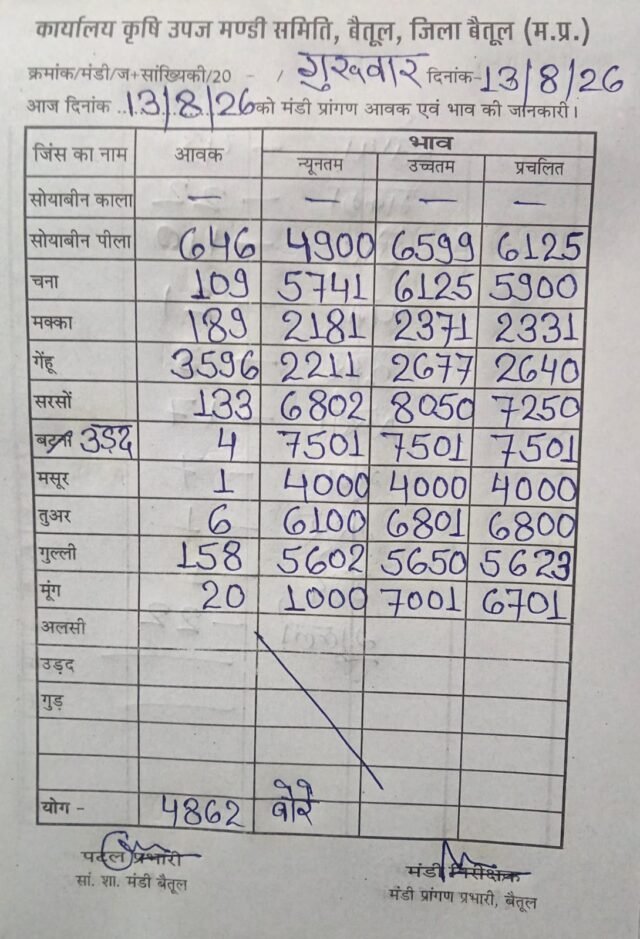 कार्यालय कृषि उपज मण्डी समिति, बैतूल, जिला बैतूल (म.प्र.)
क्रमांक/मंडी/ज+सांख्यिकी/20 - / गुरूवार दिनांक-13/8/26
आज दिनांक 13/8/26 को मंडी प्रांगण आवक एवं भाव की जानकारी।
जिंस का नाम आवक भाव
न्यूनतम उच्चतम प्रचलित
सोयाबीन काला — — — —
सोयाबीन पीला 646 4900 6599 6125
चना 109 5741 6125 5900
मक्का 189 2181 2371 2331
गेंहू 3596 2211 2677 2640
सरसों 133 6802 8050 7250
बटना उड़द 4 7501 7501 7501
मसूर 1 4000 4000 4000
तुअर 6 6100 6801 6800
गुल्ली 158 5602 5650 5623
मूंग 20 1000 7001 6701
अलसी
उड़द
गुड़
योग - 4862 बोरे
प्रभारी मंडी निरीक्षक
सां. शा. मंडी बैतूल मंडी प्रांगण प्रभारी, बैतूल